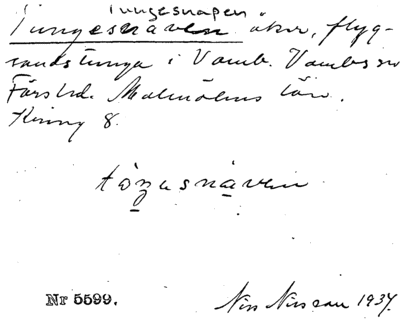 Tungesnapen.
Tungesnaven åker, flyg-
sandstunga i Vomb. Vombs sn
Färs hd. Malmöhus län.
Kinny 8.
Nr 5599.
Nils Nilsson 1937.